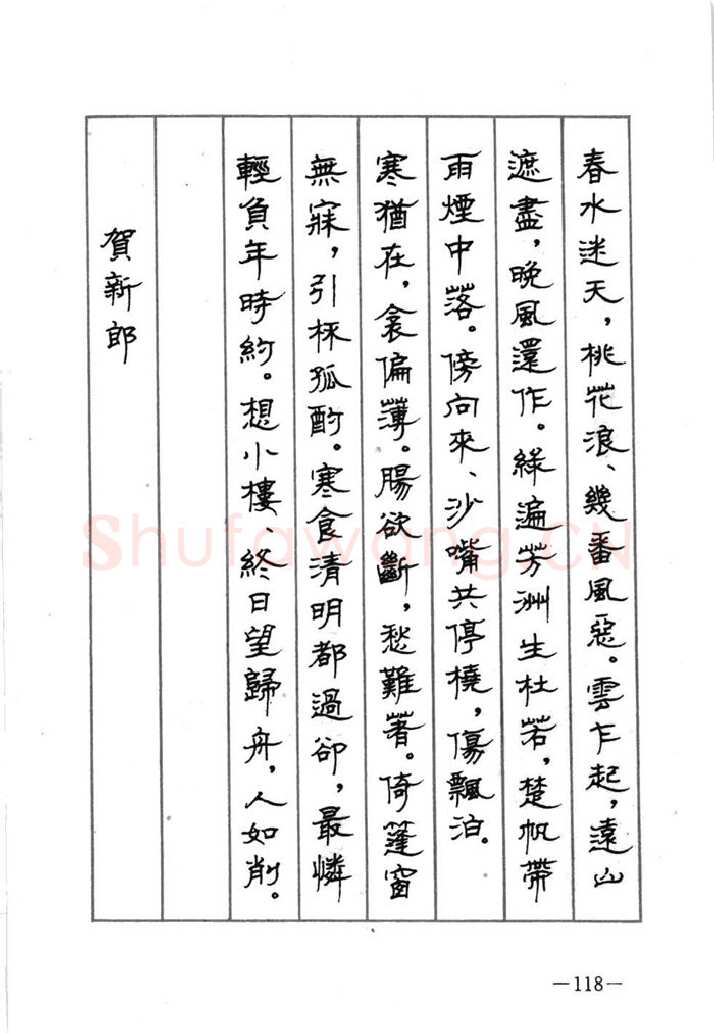 春水迷天，桃花浪、幾番風惡。雲乍起，遠山
遮盡，晚風還作。綠遍芳洲生杜若，楚帆帶
雨煙中落。傍向來、沙嘴共停橈，傷飄泊。
寒猶在，衾偏薄。腸欲斷，愁難著。倚篷窗
無寐，引杯孤酌。寒食清明都過卻，最憐
輕負年時約。想小樓、終日望歸舟，人如削。
賀新郎
Shufawang.CN
—118—